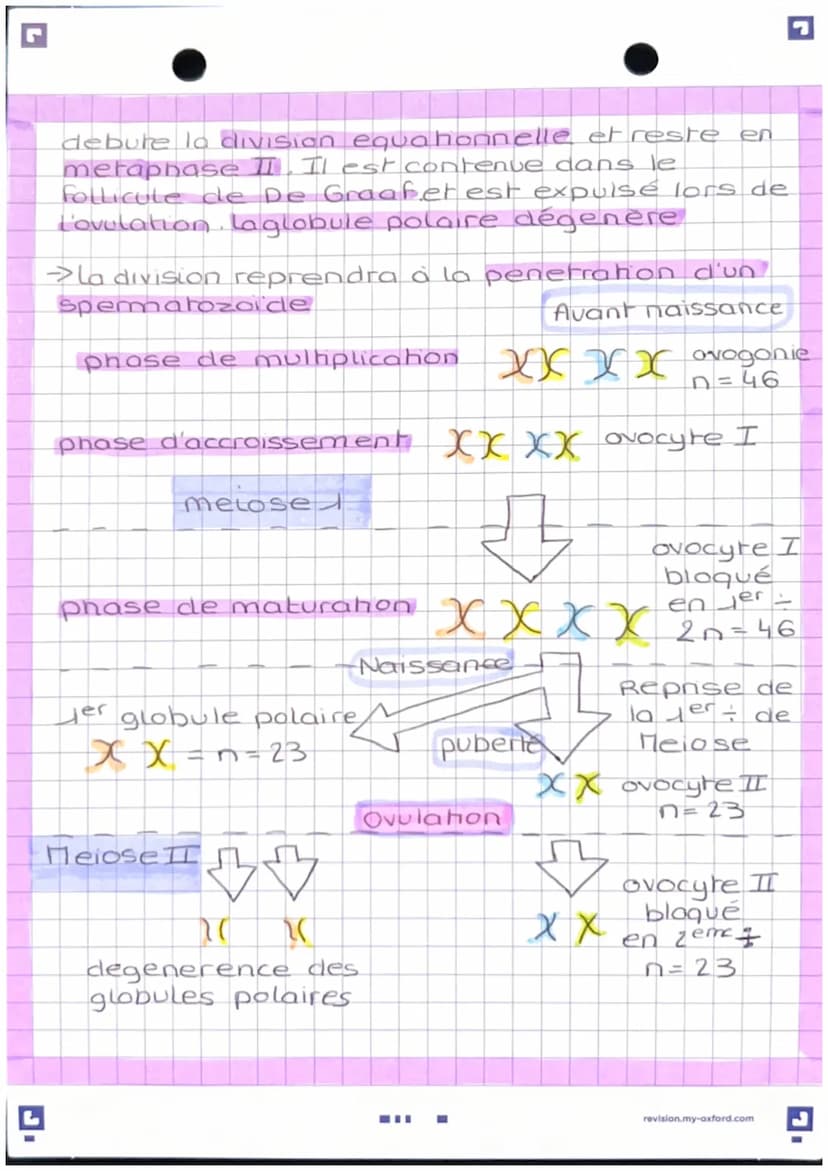 debute la division equationnelle et reste en
metaphase II. Il est contenue dans le
follicule de De Graaf.et est expulsé lors de
l'ovulation. la globule polaire dégenère
→ La division reprendra à la penetration d'un
spermatozoïde
Avant naissance
phase de multiplication ovogonie
n = 46
phase d'accroissement ovocyte I
meiose 1
ovocyte I
bloqué
phase de maturation en 1er ÷
2n = 46
Naissance
Reprise de
1er globule polaire la 1er ÷ de
= n = 23 puberté Meiose
ovocyte II
n = 23
Ovulation
Meiose II
ovocyte II
bloqué
en 2eme ÷
degenerence des n = 23
globules polaires
revision.my-oxford.com